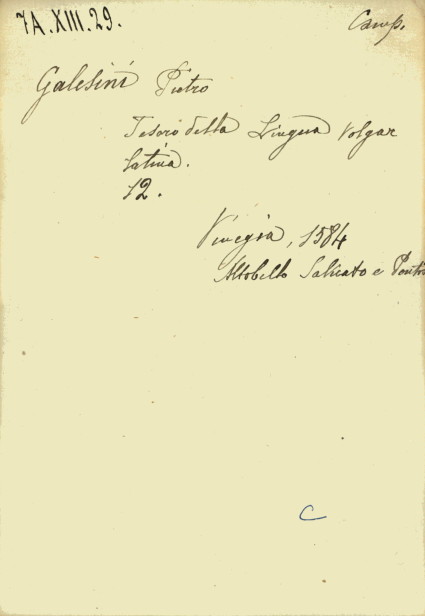 7A.XIII.29.
Camp.
Galesini Pietro
Tesoro della Lingua Volgar
latina.
12.
Vinegia, 1584
Altobello Salicato e
C